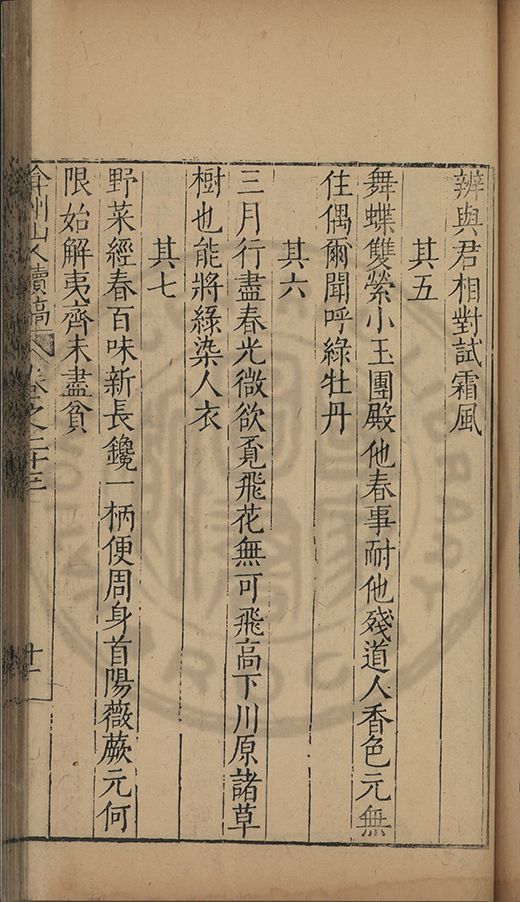 辨與君相對試霜風
其五
舞蝶雙縈小玉團殿他春事耐他殘道人香色元無
住偶爾聞呼綠牡丹
其六
三月行盡春光微欲覓飛花無可飛高下川原諸草
樹也能將綠染人衣
其七
野菜經春百味新長鑱一柄便周身首陽薇蕨元何
限始解夷齊未盡貧
弇州山人續稿 卷之二十三
十一